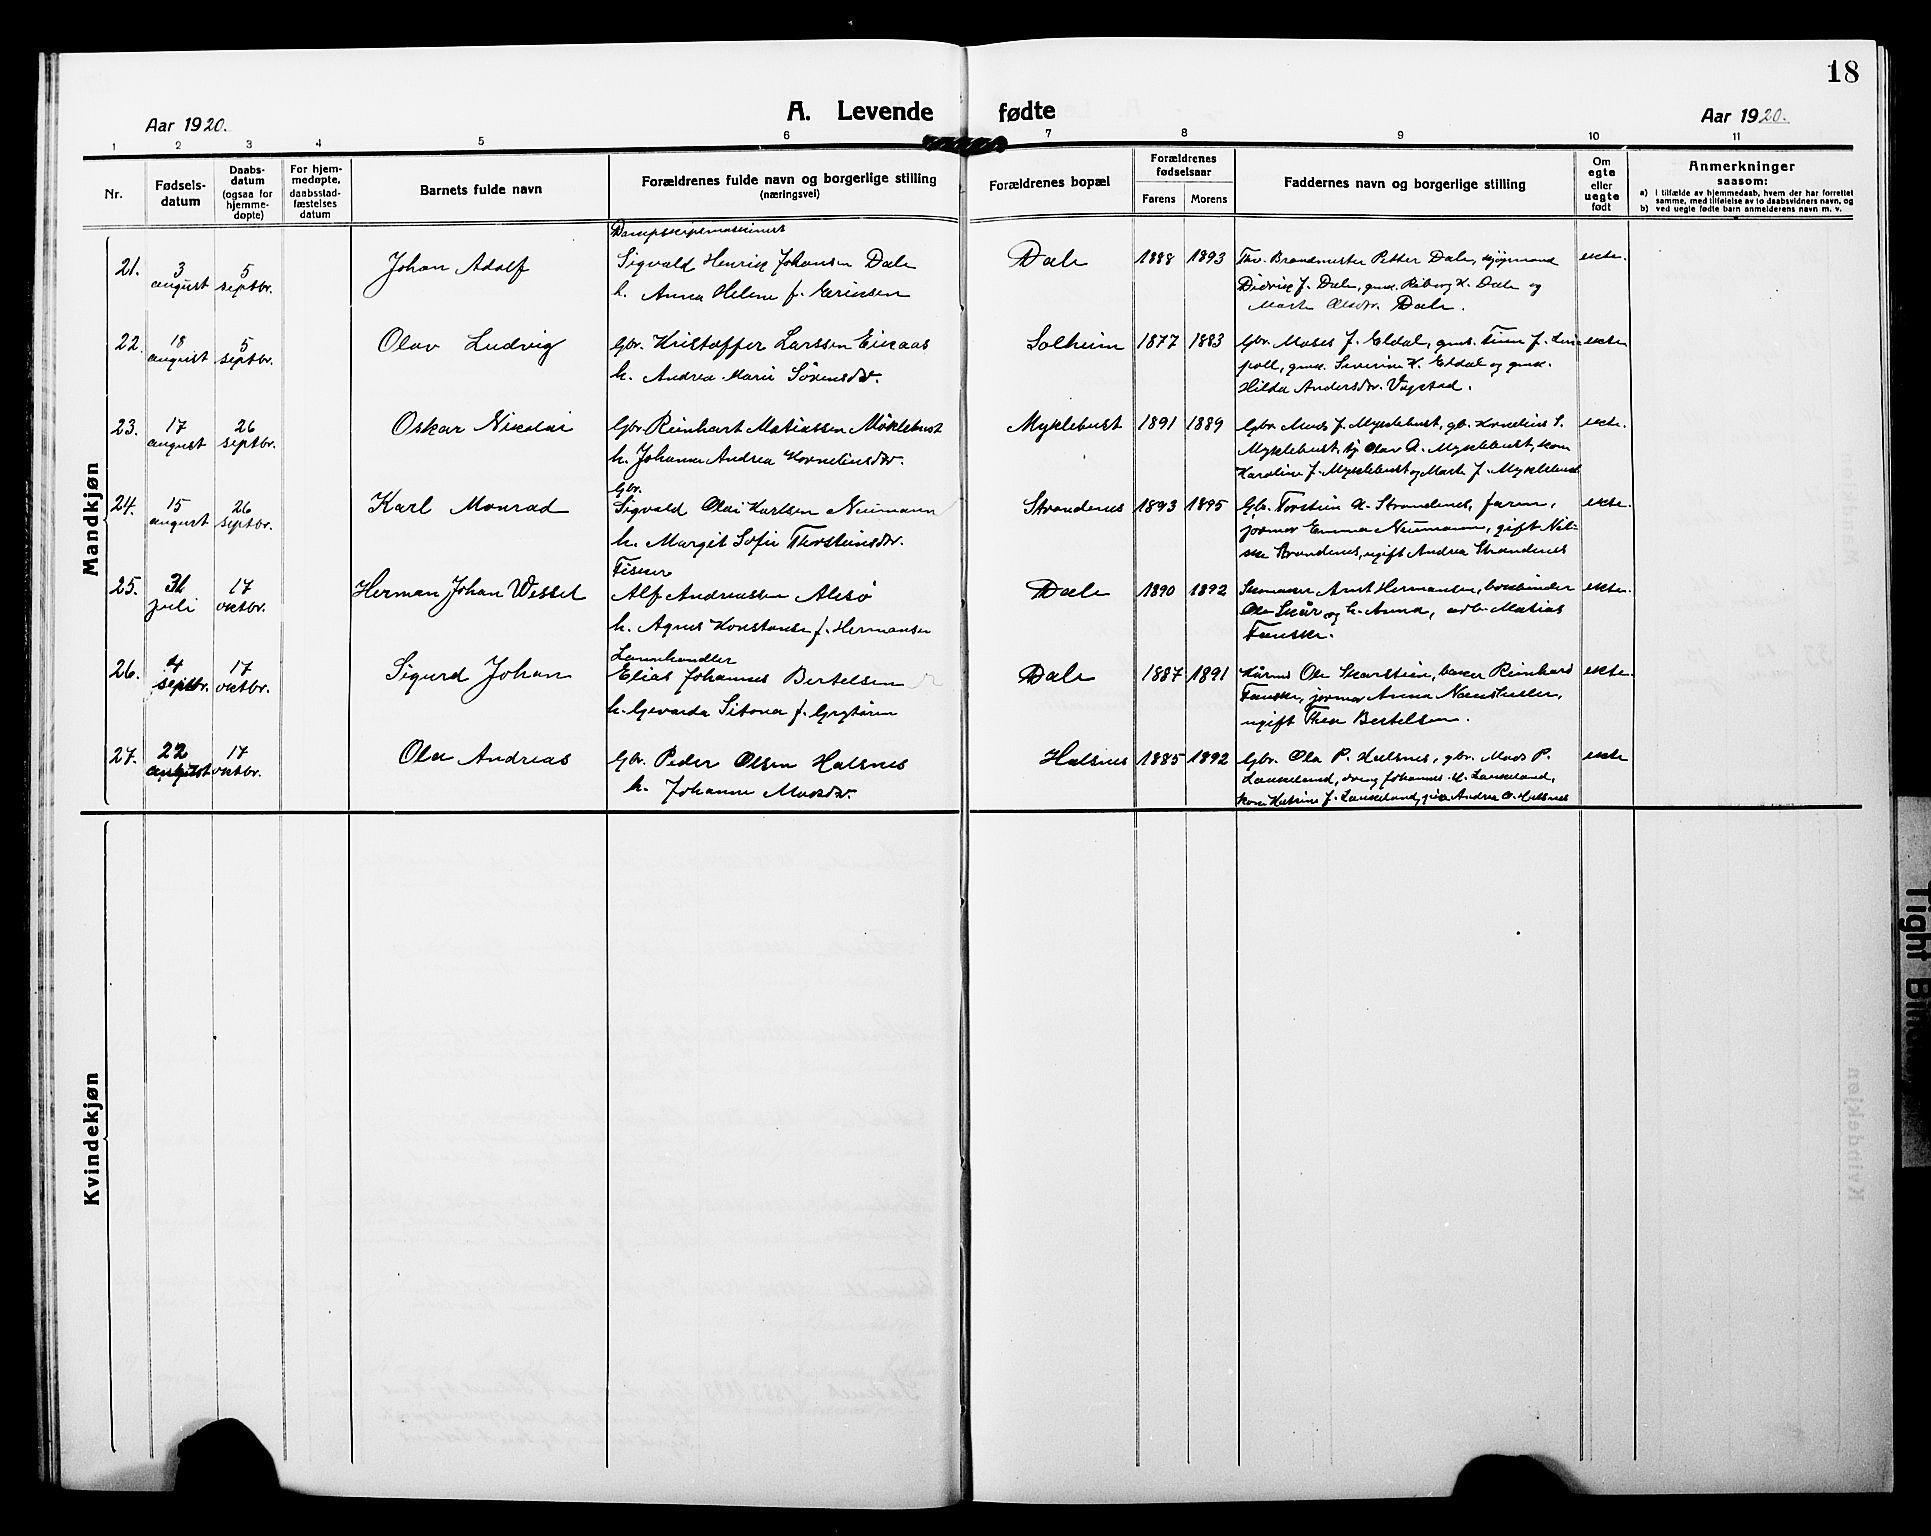 18
A. Levende fødte
Aar 1920.
Aar 1920.
1 2 3 4 5 6 7 8 9 10 11
Nr.
Fødsels-
datum
Daabs-
datum
(ogsaa for
hjemme-
døpte)
For hjem-
medøpte,
daabsstad-
fæstelses
datum
Barnets fulde navn
Forældrenes fulde navn og borgerlige stilling
(næringsvei)
Forældrenes bopæl
Forældrenes
fødselsaar
Farens Morens
Faddernes navn og borgerlige stilling
Om
egte
eller
uegte
født
Anmerkninger
saasom:
a) i tilfælde av hjemmedaab, hvem der har forrettet
samme, med tilføielse av to daabsvidners navn, og
b) ved uegte fødte barn anmelderens navn m. v.
Mandkjøn
21. 3 august 5 septbr. Johan Adolf
Dampskipsmaskinist
Sigvald Henrik Johansen Dale
h. Anna Helene f. Eriksen
Dale 1888 1893
Brandmester Petter Dale,
Didrik J. Dale, gmk. K. Dale og
Marte Olsdtr. Dale.
ekte.
22. 18 august 5 septbr. Olav Ludvig
Gbr. Kristoffer Larssen Eikaas
h. Andrea Marie Sörensdtr.
Solheim 1877 1883
Gbr. Moses J. Eldal,
poll, gmk. Severine K. Eldal og gmk.
Hilda Andersdtr. Vagstad.
ekte
23. 17 august 26 septbr. Oskar Nikolai
Gbr. Reinhart Matiassen Möklebust
h. Johanna Andrea Korneliusdtr.
Myklebust 1891 1889
Gbr. Mads J. Myklebust, gb. Kornelius S.
Myklebust, Olav A. Myklebust, kone
Karoline J. Myklebust og Marte J. Myklebust
ekte.
24. 15 august 26 septbr. Karl Monrad
Gbr.
Sigvald Olai Karlsen Neumann
h. Margit Sofie Thorsteinsdtr.
Strandenes 1893 1895
Gbr. Torstein A. Strandenes, farm,
jormor Emma Neumann, gift
Strandenes, ugift Andrea Strandenes
ekte.
25. 31 juli 17 oktbr. Herman Johan Wessel
Fisker
Alf Andreassen Alesö
h. Agnes Konstanse f. Hermansen
Dale 1890 1892
Skomaker Arnt Hermansen, bokbinder
Ole Skår og h. Anna, arb. Matias
Fansker.
ekte.
26. 4 septbr. 17 oktbr. Sigurd Johan
Lannhandler
Elias Johannes Bertelsen
h. Gevarda Sitona f. Grytören
Dale 1887 1891
Ole Skarstein, baker Reinhard
jormor Anna
ugift Thea Bertelsen.
ekte.
27. 22 august 17 oktbr. Ola Andreas
Gbr. Peder Olsen Halsnes
h. Johanne Madsdtr.
Halsnes 1885 1892
Gbr. Ola P. Halsnes, gbr. Mads P.
Laukeland, dreng Johannes M. Laukeland,
kone Katrine J. Laukeland, pike Andrea O. Halsnes
ekte
Kvindekjøn